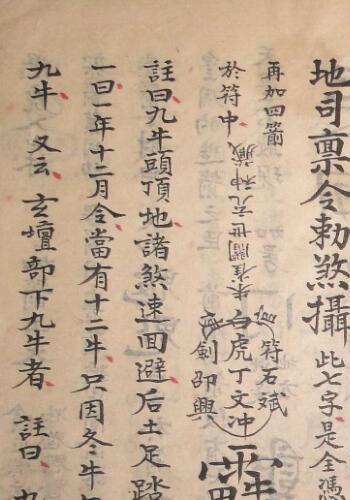 地司禀令勅煞攝 此七字是全憑
再加四箭
於符中
朱雀
白虎丁文冲
符石斌
劍邵興
註曰九牛頭頂地諸煞速回避后土足踏
一曰一年十二月令當有十二牛只因冬牛
九牛又云玄壇部下九牛者 註曰九